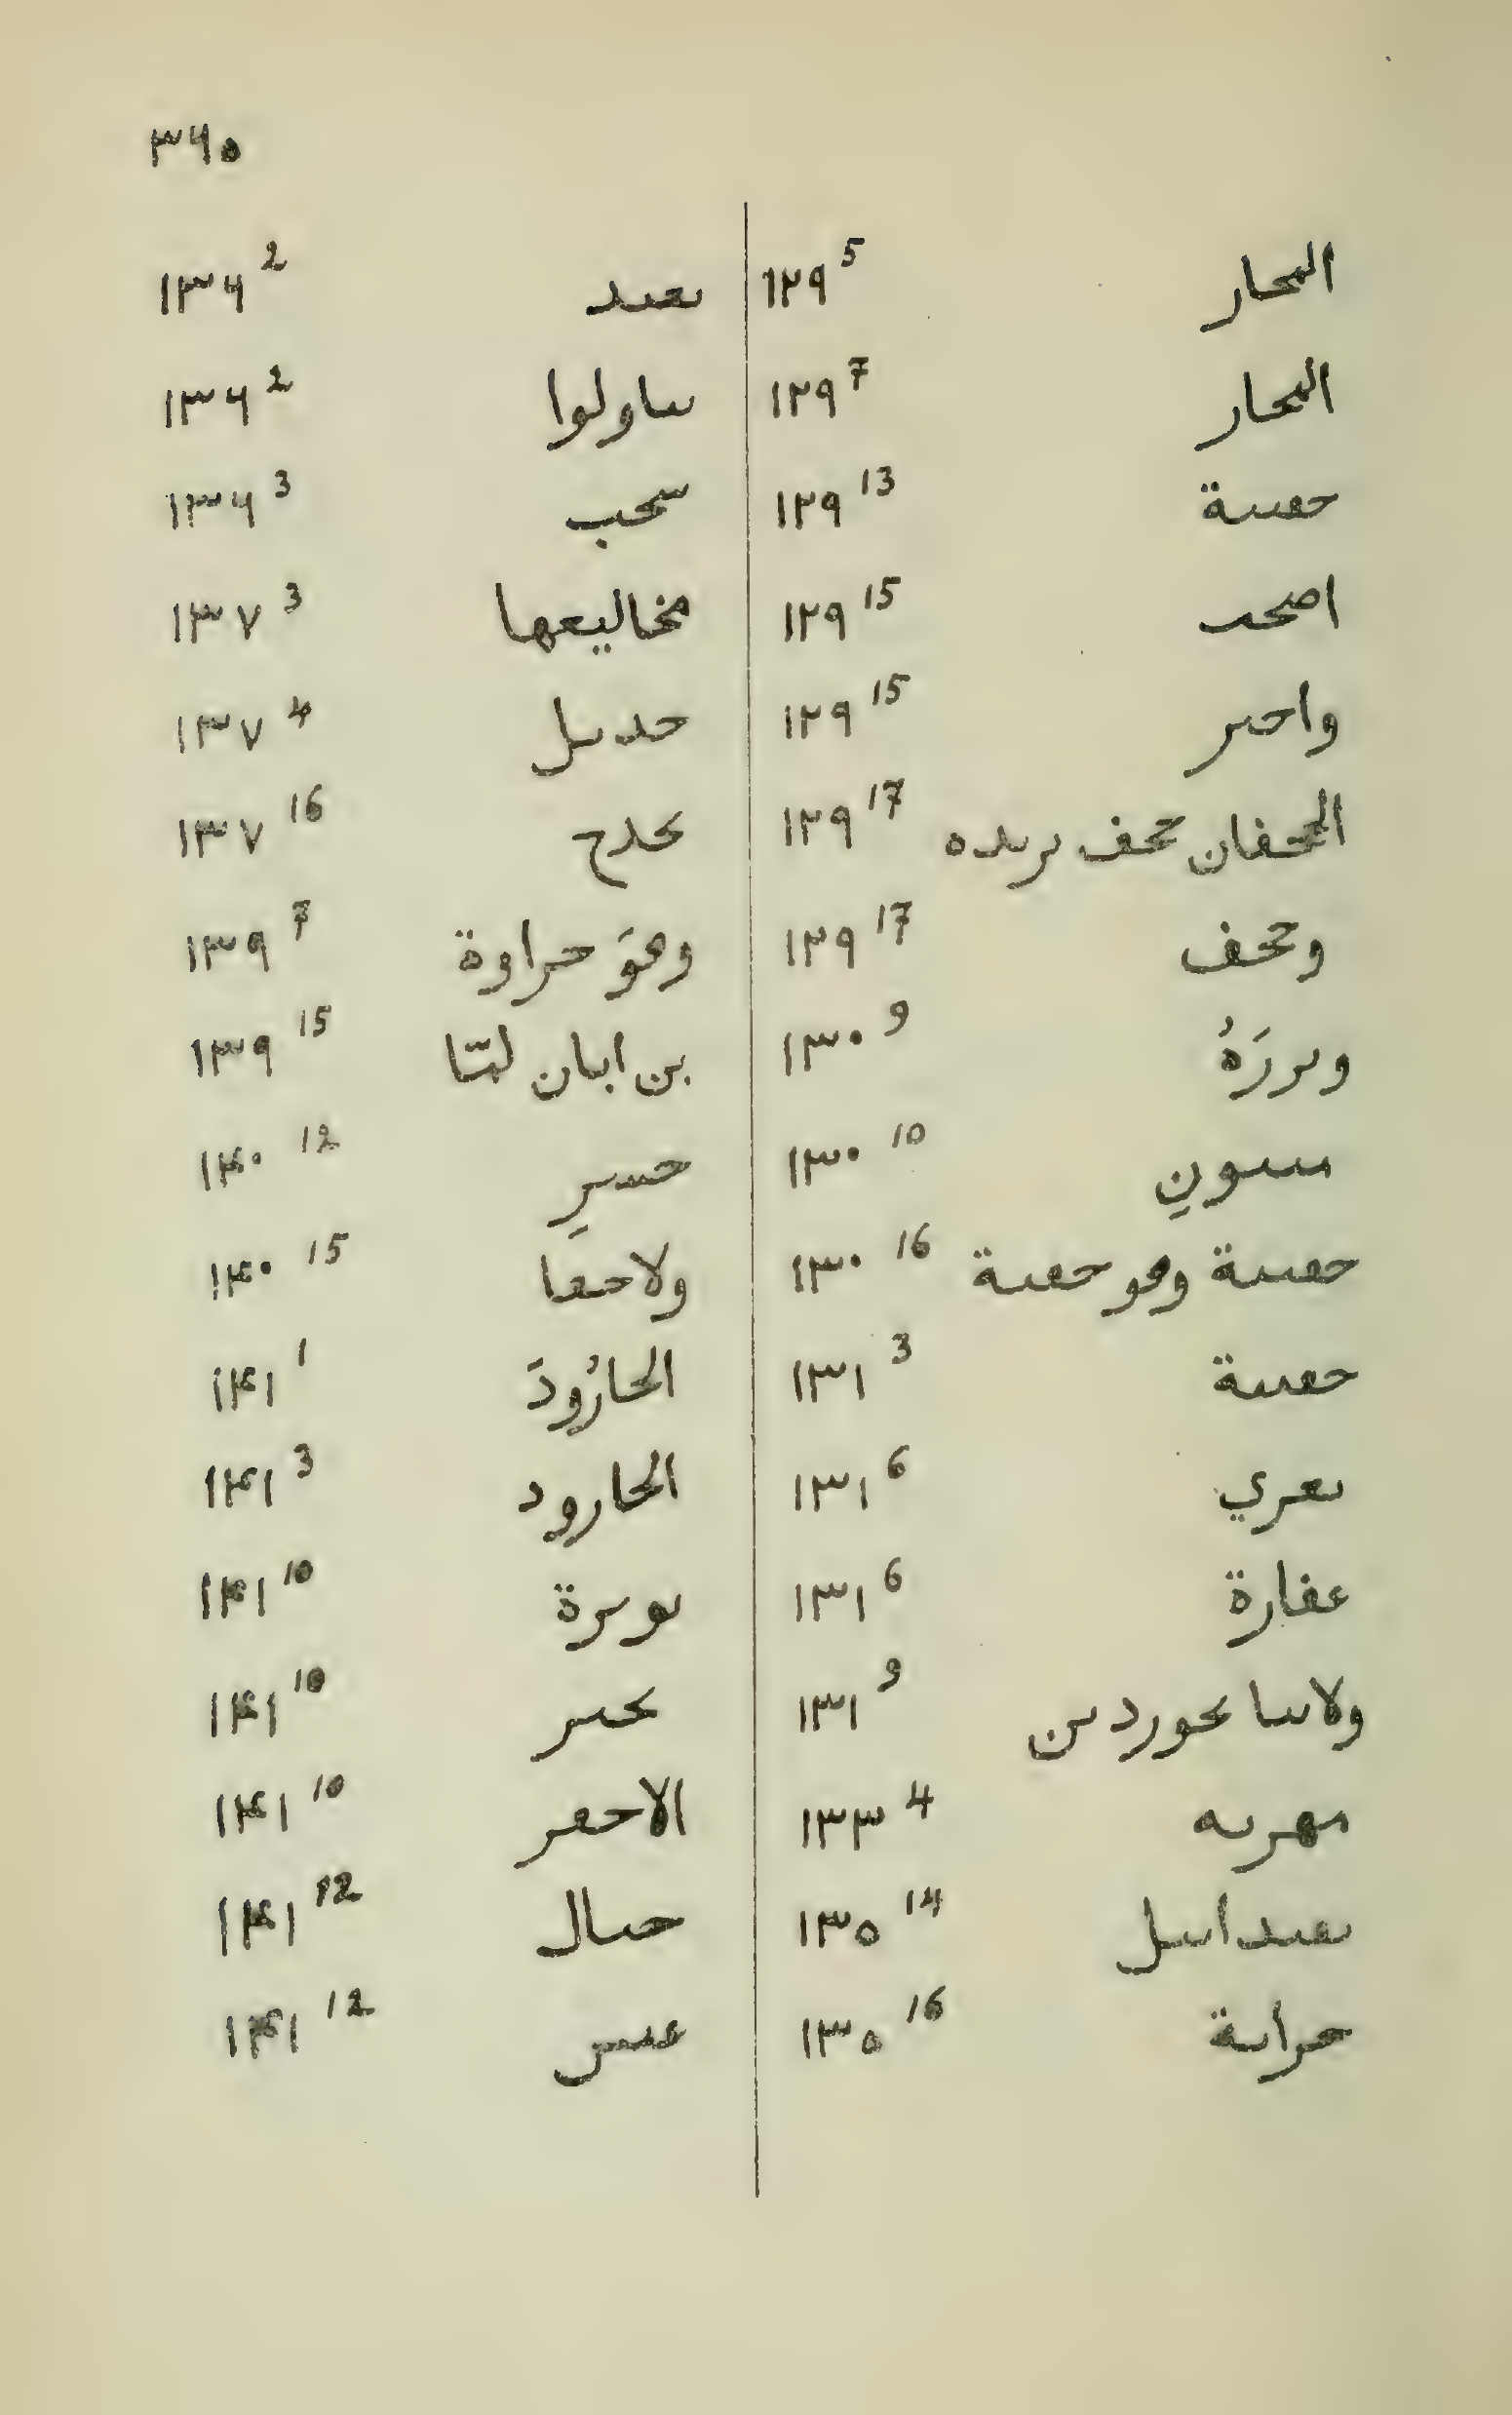 ٣٦٥
المحار ١٢٩ 5
المحار ١٢٩ 7
حڡٮسة ١٢٩ 13
اصحٮ ١٢٩ 15
واحٮر ١٢٩ 15
الححفان ححف ٮرٮده ١٢٩ 17
وححف ١٢٩ 17
وٮررَهُ ١٣٠ 9
مٮسون ١٣٠ 10
حڡٮٮة وهو حڡٮة ١٣٠ 16
حڡٮٮة ١٣١ 3
ٮعري ١٣١ 6
عفارة ١٣١ 6
ولاٮٮا ٮحوردٮں ١٣١ 9
مهرٮه ١٣٣ 4
ٮعٮداٮٮل ١٣٥ 14
حراٮة ١٣٥ 16
ٮعٮد ١٣٦ 2
ٮٮاولوا ١٣٦ 2
سحب ١٣٦ 3
مخاليعها ١٣٧ 3
حدٮل ١٣٧ 4
ٮحدح ١٣٧ 16
وهوَ حراوة ١٣٩ 7
بن ابان لٮّا ١٣٩ 15
حسٮر ١٤٠ 12
ولاحٯا ١٤٠ 15
الحارُودَ ١٤١ 1
الحارود ١٤١ 3
ٮوٮرة ١٤١ 10
ٮحٮر ١٤١ 10
الاحعر ١٤١ 10
حٮال ١٤١ 12
عٮس ١٤١ 12